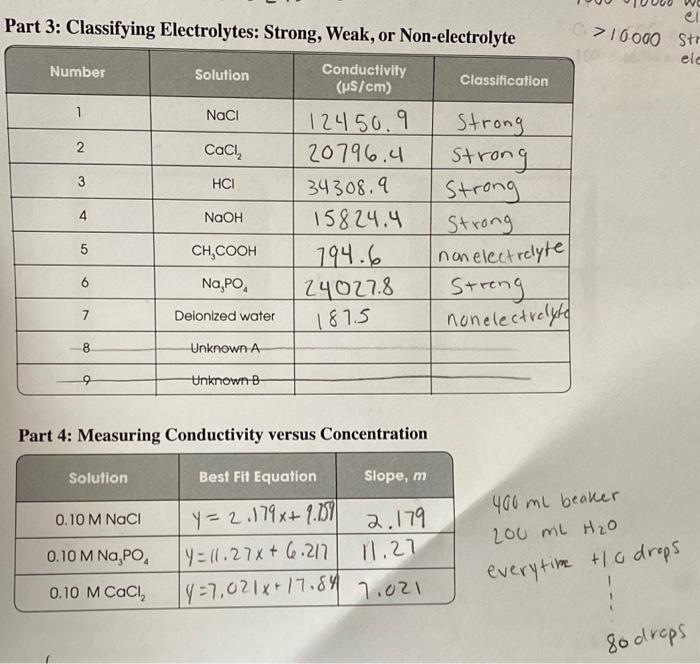 >10000
Part 3: Classifying Electrolytes: Strong, Weak, or Non-electrolyte
Number Solution Conductivity (µS/cm) Classification
1 NaCl 12450.9 Strong
2 CaCl₂ 20796.4 Strong
3 HCl 34308.9 Strong
4 NaOH 15824.4 Strong
5 CH₃COOH 794.6 nonelectrolyte
6 Na₃PO₄ 24027.8 Strong
7 Deionized water 187.5 nonelectrolyte
8 Unknown A
9 Unknown B
Part 4: Measuring Conductivity versus Concentration
Solution Best Fit Equation Slope, m
0.10 M NaCl y = 2.179x+ 2.179
0.10 M Na₃PO₄ y=11.27x + 6.217 11.27
0.10 M CaCl₂ y=7.021x+17.84 7.021
400 mL beaker
200 mL H₂O
everytime drops
80 drops